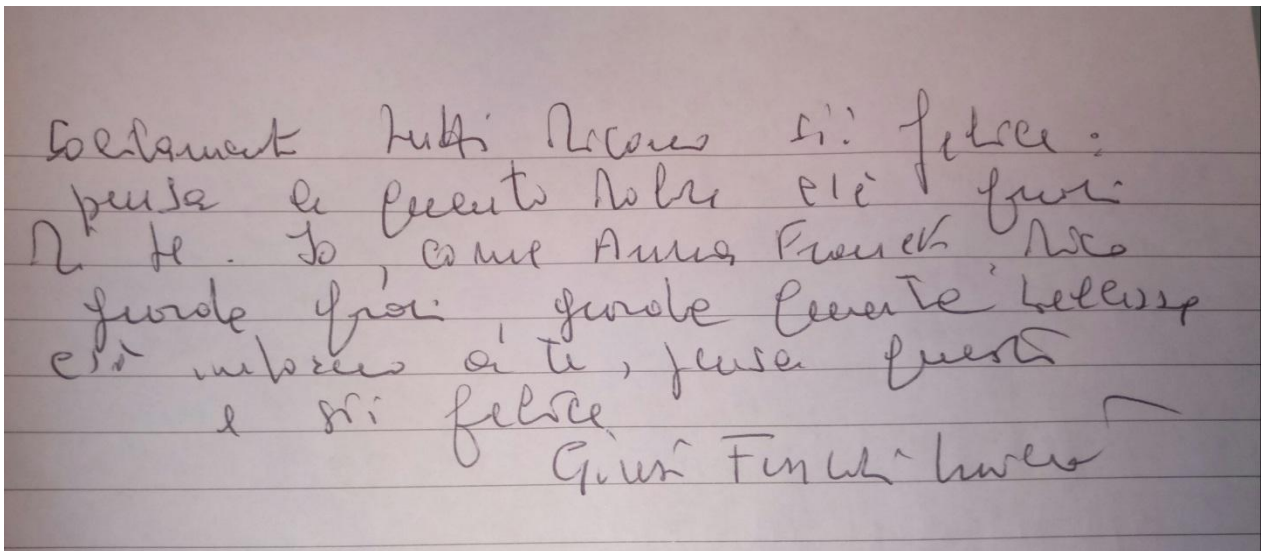 Solitamente tutti dicono sii felice:
pensa a quanto dolore c'è fuori
di te. Io, come Anna Franck dico
guarda fuori, guarda quanta bellezza
c'è intorno a te, pensa questo
e sii felice
Giusi